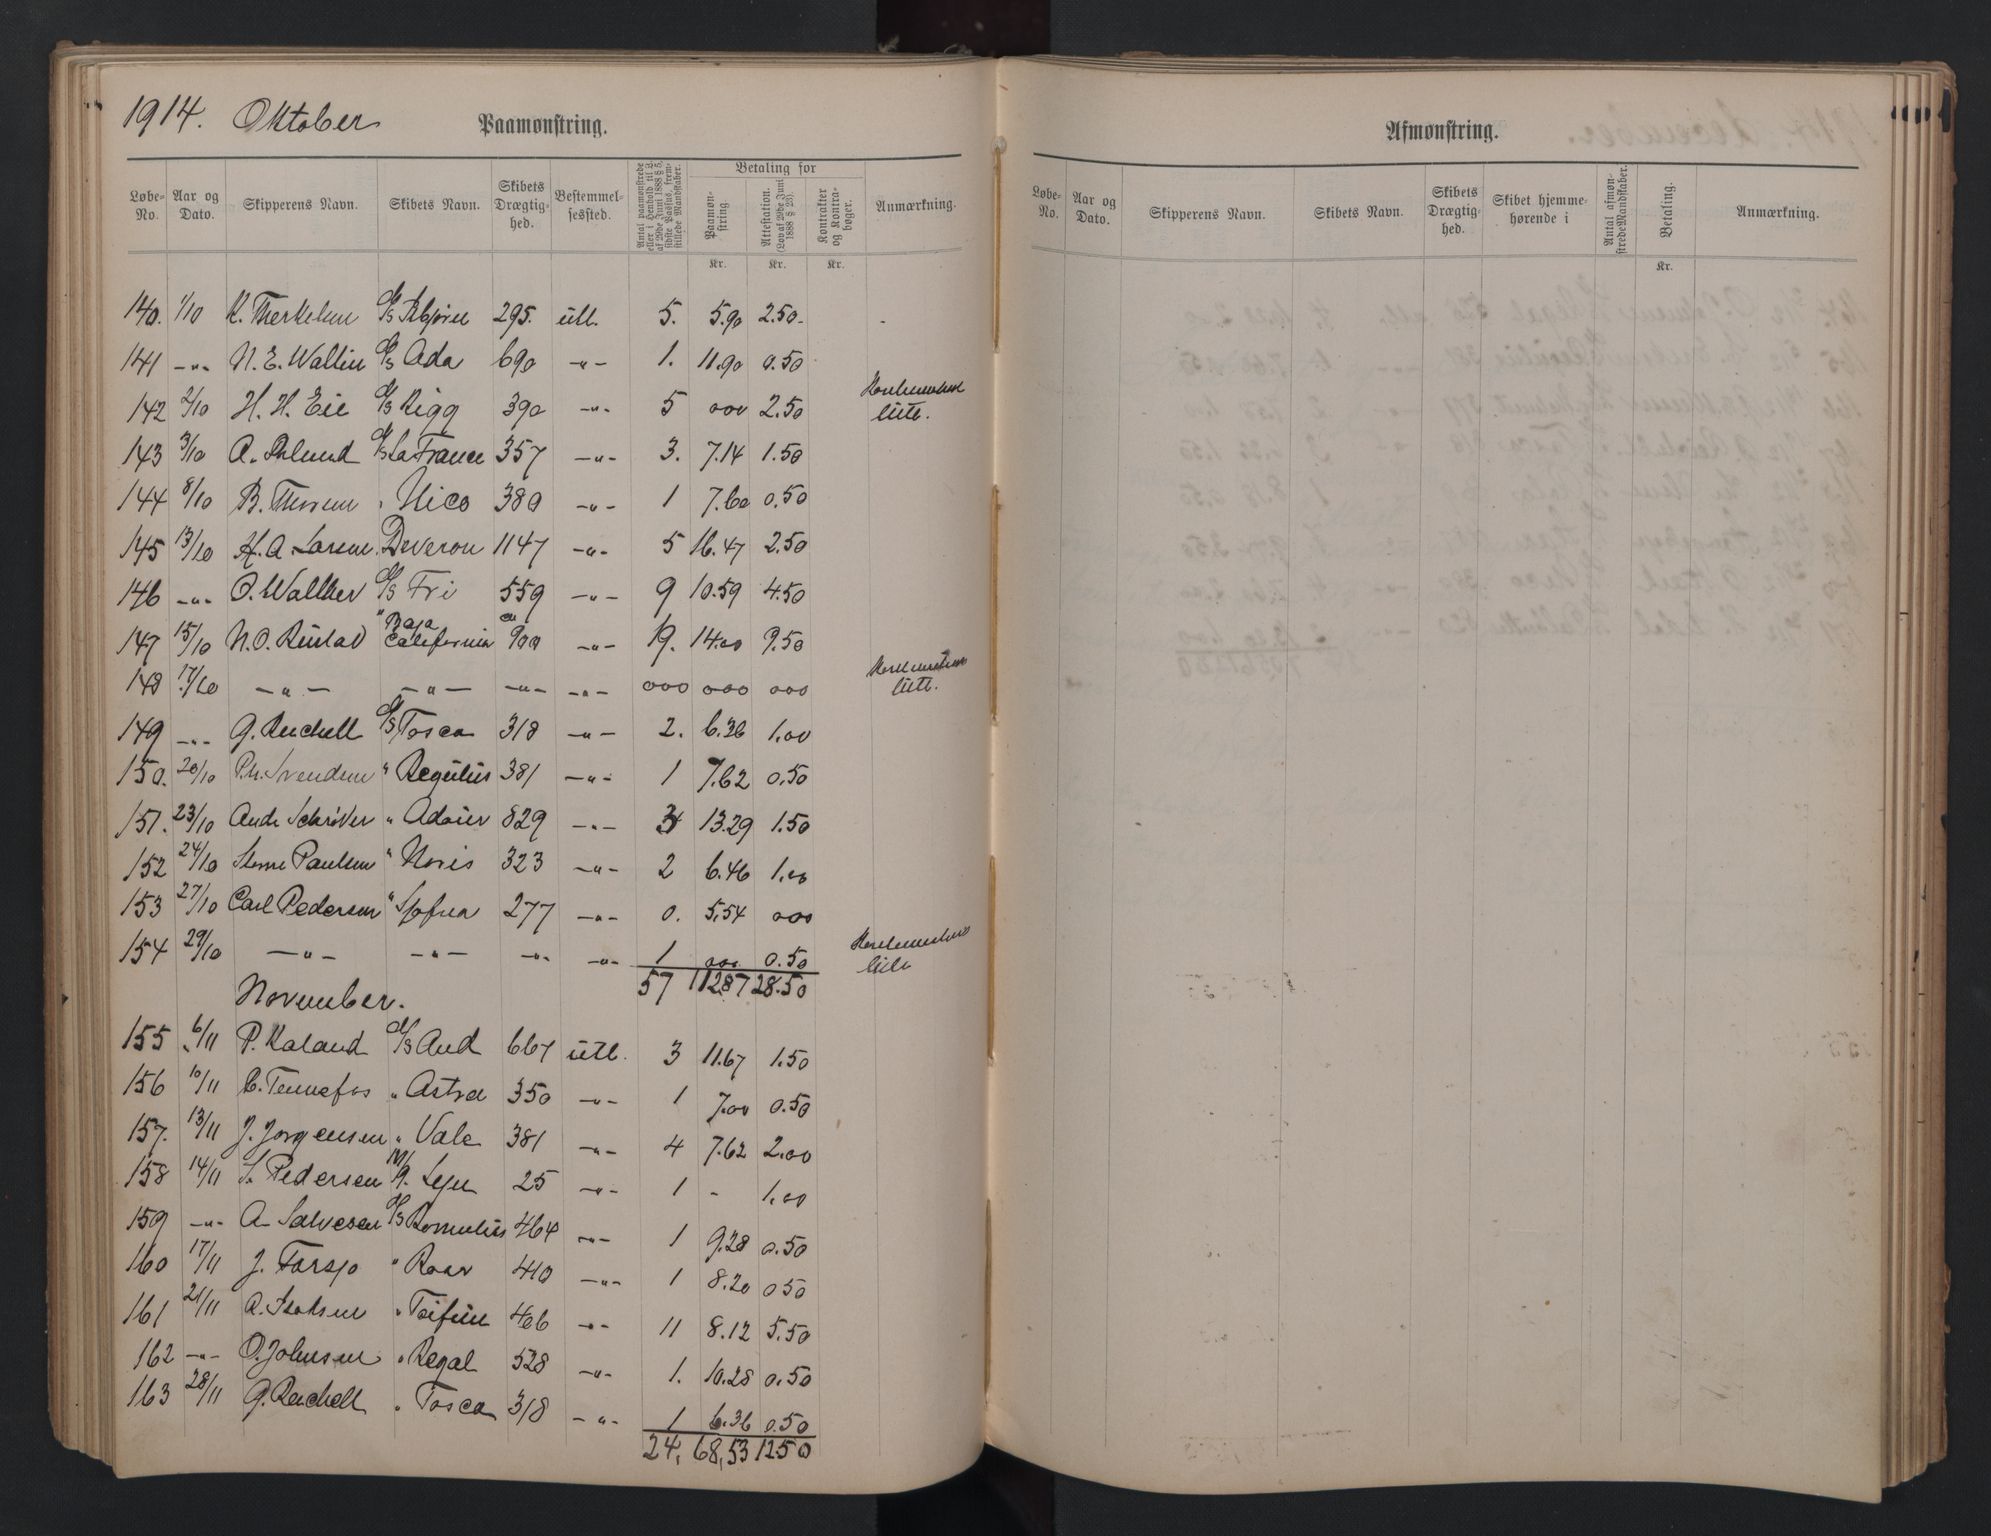 1914. Oktober
Paamønstring.
Løbe-No. Aar og Dato. Skipperens Navn. Skibets Navn. Skibets Drægtig-hed. Bestemmel-sessted. Antal paamønstrede eller i Henhold til L. af 29de Juni 1888 § 5, sidste Passus, frem-stillede Mandskaber. Betaling for Paamøn-string Attestation. (Lov af 29de Juni 1888 § 23). Kontrakter og Kontra-bøger. Anmærkning.
Kr. Kr. Kr.
140. 1/10 K. Therkelsen D/S Asbjørn 295. utl. 5. 5.90 2.50
141 -"- N. E. Wallin D/S Ada 690 -"- 1. 11.90 0.50
142 2/10 H. H. Eie D/S Rigg 390 -"- 5 000 2.50 utl.
143 3/10 A. D/S La France 357 -"- 3. 7.14 1.50
144 8/10 B. Thorsen " Nico 380 -"- 1 7.60 0.50
145 13/10 H. A. Larsen " Deveron 1147 -"- 5 16.47 2.50
146 -"- O. Walther D/S Fri 559 -"- 9 10.59 4.50
147 15/10 N. O. Rustad " Baja California ca 900 -"- 19. 14.00 9.50
148 17/10 -"- -"- -"- -"- 000 000 000 utl.
149 -"- G. Reichelt D/S Tosca 318 -"- 2. 6.36 1.00
150. 20/10 Ph. Svendsen " Regulus 381 -"- 1 7.62 0.50
151. 23/10 Andr. Schrøder " 829 -"- 3 13.29 1.50
152 24/10 Paulsen " Noris 323 -"- 2 6.46 1.00
153 27/10 Carl Pedersen " 277 -"- 0. 5.54 000
154 29/10 -"- -"- -"- -"- 1 000 0.50
57 112.87 28.50
November.
155 6/11 P. Kaland D/S Aud 667 utl. 3 11.67 1.50
156 10/11 C. Tennefos " Astrea 350 -"- 1 7.00 0.50
157. 13/11 J. Jørgensen " Vale 381 -"- 4 7.62 2.00
158 14/11 S. Pedersen M/ 25 -"- 1 - 1.00
159 -"- A. Salvesen D/S Romulus 464 -"- 1 9.28 0.50
160 17/11 J. Farsjø " Roar 410 -"- 1 8.20 0 50
161 21/11 A. Isaksen " Taifun 406 -"- 11 8.12 5.50
162 -"- O. Johnsen " Regal 528 -"- 1. 10.28 0.50
163 28/11 G. Reichelt " Tosca 318 -"- 1 6.36 0.50
24. 68,53 12.50
Afmønstring.
Løbe-No. Aar og Dato. Skipperens Navn. Skibets Navn. Skibets Drægtig-hed. Skibet hjemme-hørende i Antal afmøn-strede Mandskaber. Betaling. Anmærkning.
Kr.